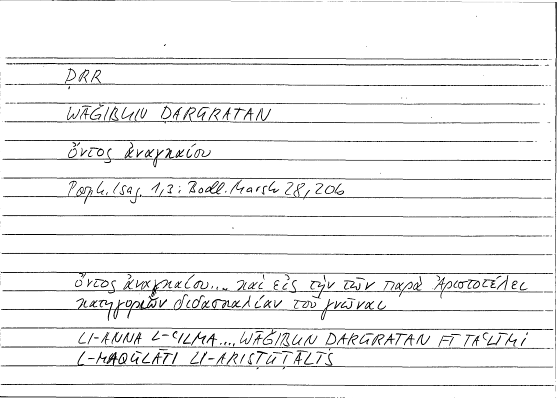 ḌRR
WĀǦIBUN ḌARŪRATAN
ὄντος ἀναγκαίου
Porph. Isag. 1,3: Bodl. Marsh 28, 206
ὄντος ἀναγκαίου... καὶ εἰς τὴν τῶν παρὰ Ἀριστοτέλει
κατηγοριῶν διδασκαλίαν τοῦ γνῶναι
LI-ANNA L-ʿILMA.... WĀǦIBUN DARŪRATAN FĪ TAʿLĪMI
L-MAQŪLĀTI LI-ARISṬŪṬĀLĪS